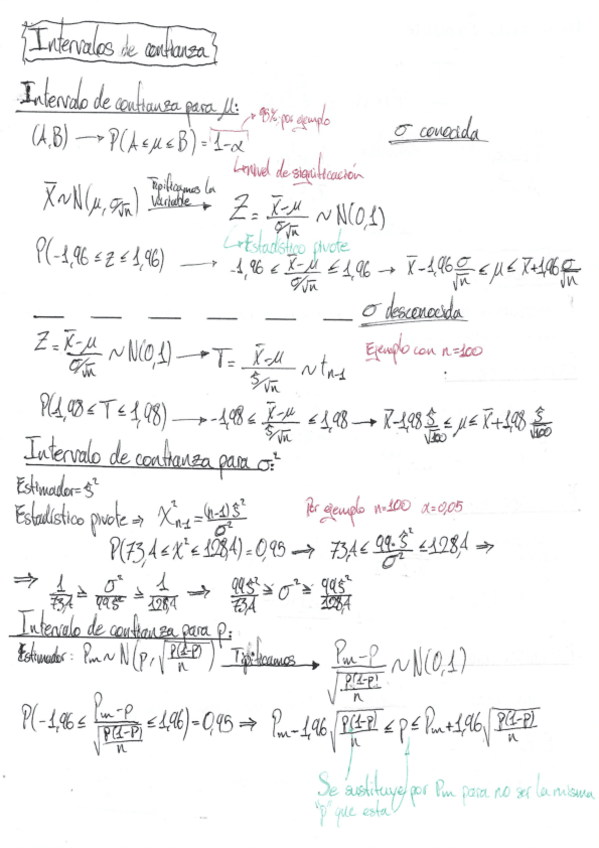 Intervalos de confianza
Intervalo de confianza para μ:
(A,B) → P(A ≤ μ ≤ B) = 1-α → 95% por ejemplo
σ conocida
↳ nivel de significación
X̄ ~ N(μ, σ/√n) Tipificamos la variable → Z = (X̄-μ)/(σ/√n) ~ N(0,1)
↳ Estadístico pivote
P(-1,96 ≤ z ≤ 1,96) → -1,96 ≤ (X̄-μ)/(σ/√n) ≤ 1,96 → X̄-1,96 σ/√n ≤ μ ≤ X̄+1,96 σ/√n
σ desconocida
Z = (X̄-μ)/(σ/√n) ~ N(0,1) → T = (X̄-μ)/(ŝ/√n) ~ tn-1
Ejemplo con n=100
P(1,98 ≤ T ≤ 1,98) → -1,98 ≤ (X̄-μ)/(ŝ/√n) ≤ 1,98 → X̄-1,98 ŝ/√100 ≤ μ ≤ X̄+1,98 ŝ/√100
Intervalo de confianza para σ²:
Estimador = ŝ²
Estadístico pivote ⇒ X²n-1 = (n-1)ŝ²/σ²
Por ejemplo n=100 α=0,05
P(73,4 ≤ X² ≤ 128,4) = 0,95 ⇒ 73,4 ≤ 99·ŝ²/σ² ≤ 128,4 ⇒
⇒ 1/73,4 ≥ σ²/99ŝ² ≥ 1/128,4 ⇒ 99ŝ²/73,4 ≥ σ² ≥ 99ŝ²/128,4
Intervalo de confianza para p:
Estimador: Pm ~ N(p, √(p(1-p)/n)) Tipificamos → (Pm-p)/√(p(1-p)/n) ~ N(0,1)
P(-1,96 ≤ (Pm-p)/√(p(1-p)/n) ≤ 1,96) = 0,95 ⇒ Pm-1,96 √(p(1-p)/n) ≤ p ≤ Pm+1,96 √(p(1-p)/n)
Se sustituye por Pm para no ser la misma
"p" que esta